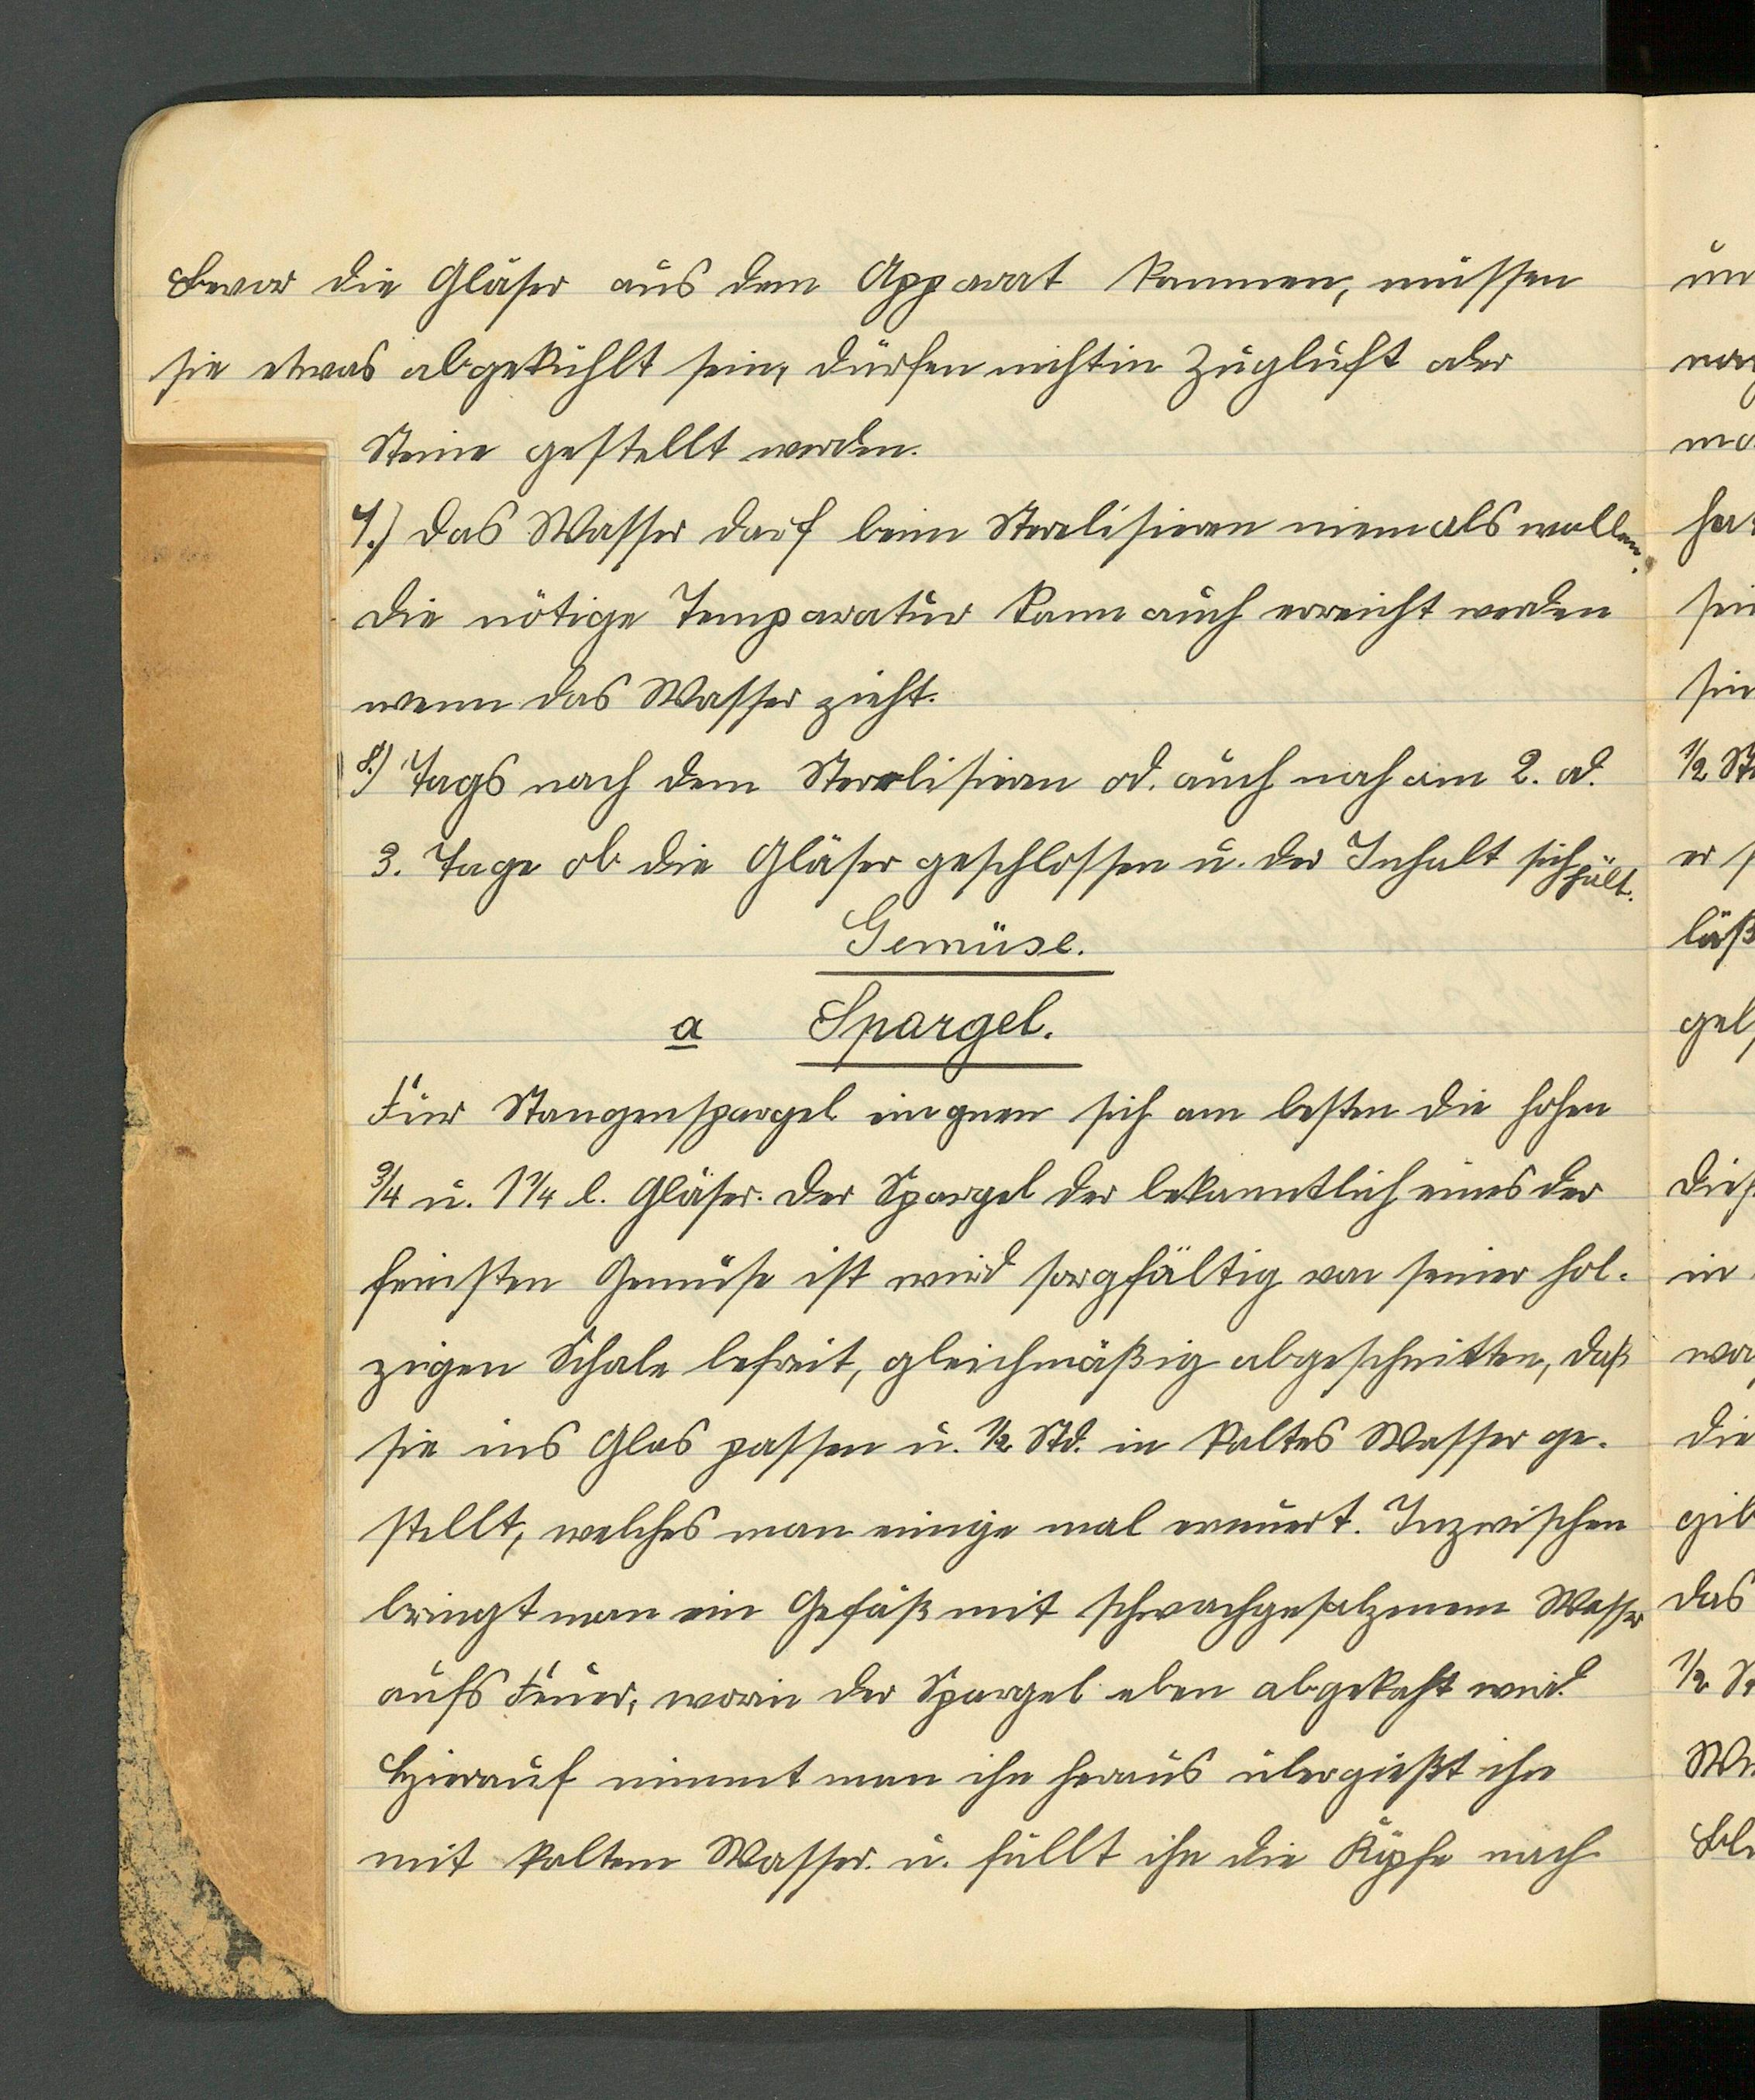 Bevor die Gläser aus dem Apparat kommen, müssen
sie etwas abgekühlt sein, dürfen nicht in Zugluft oder
Steine gestellt werden.
7.) Das Wasser darf beim Sterelisieren niemals wallen.
Die nötige Temparatur kann auch erreicht werden
wenn das Wasser zieht.
8.) Tags nach dem Sterelisieren od. auch noch am 2. od.
3. Tage ob die Gläser geschlossen u. der Inhalt sich hält.
Gemüse.
a Spargel.
Für Stangenspargel eingnen sich am besten die hohen
3/4 u. 1 1/4 l. Gläser. Der Spargel der bekanntlich eines der
feinsten Gemüse ist wird sorgfältig von seiner hol-
zigen Schale befreit, gleichmäßig abgeschnitten, daß
sie ins Glas passen u. 1/2 Std. in kaltes Wasser ge-
stellt, welches man einige mal erneuert. Inzwischen
bringt man ein Gefäß mit schwachgesalzenem Wasser
aufs Feuer, worin der Spargel eben abgekocht wird.
Hierauf nimmt man ihn heraus übergießt ihn
mit kaltem Wasser u. füllt ihn die Köpfe nach